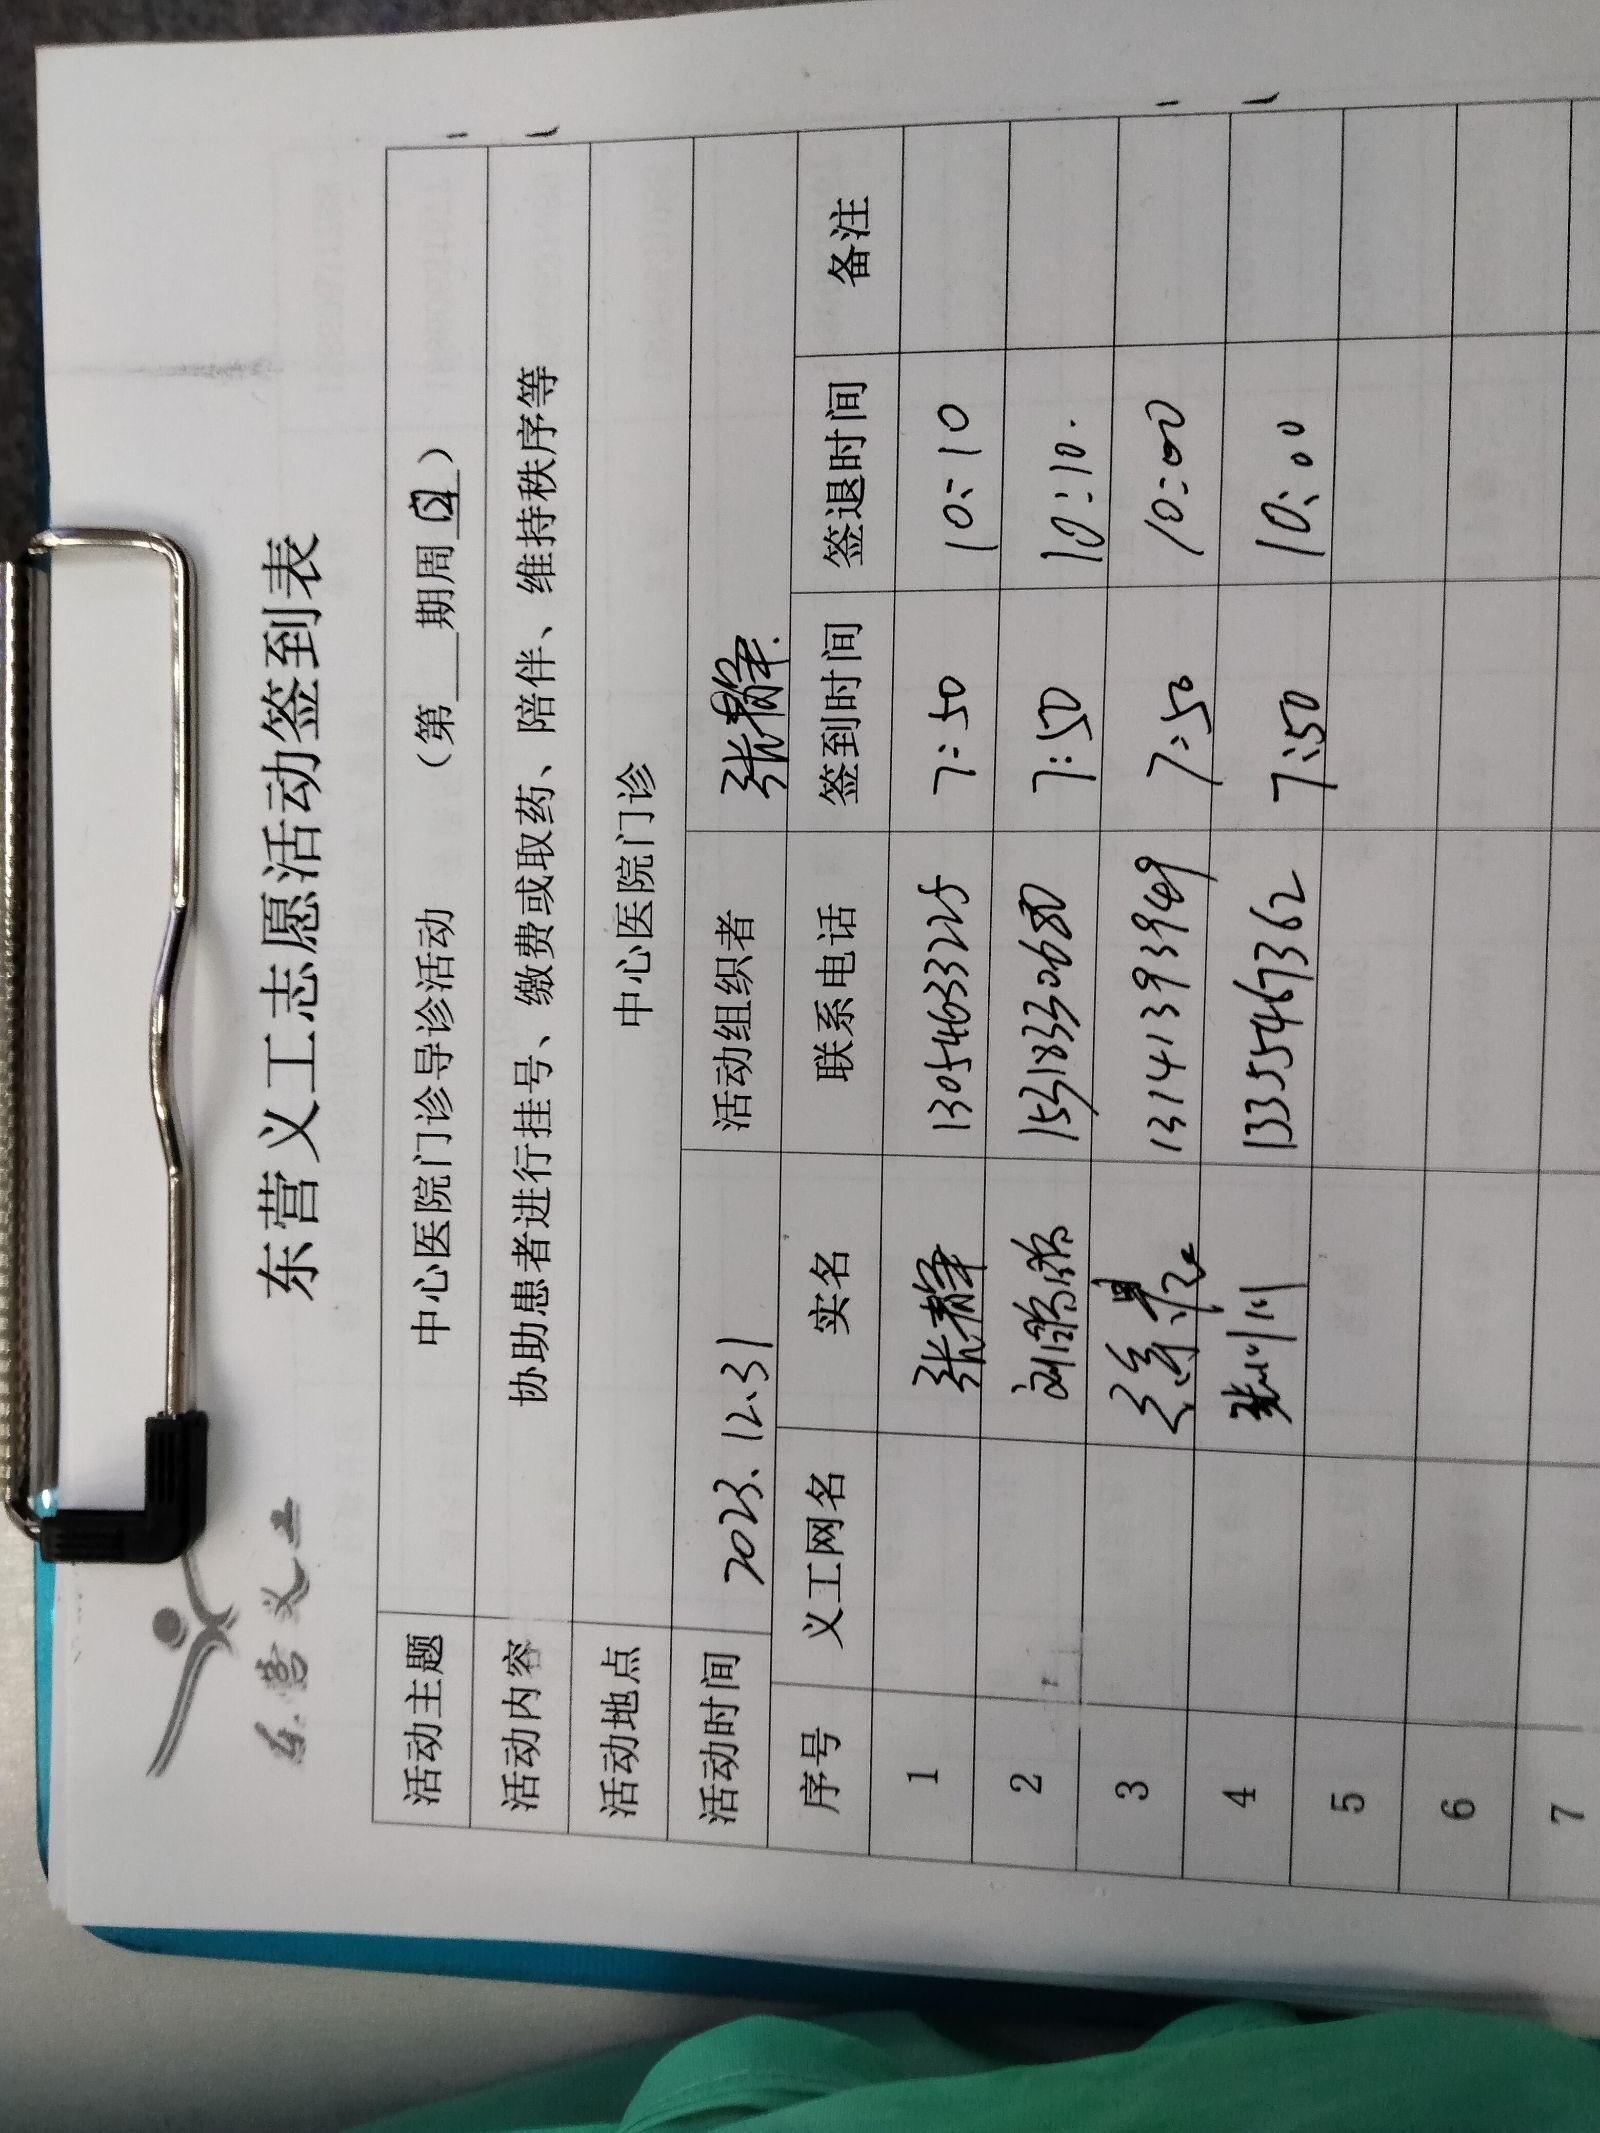 东营义工
东营义工志愿活动签到表
活动主题 中心医院门诊导诊活动 （第__期周日）
活动内容 协助患者进行挂号、缴费或取药、陪伴、维持秩序等
活动地点 中心医院门诊
活动时间 2023.12.31 活动组织者 张静
序号 义工网名 实名 联系电话 签到时间 签退时间 备注
1 张静 13054633225 7:50 10:10
2 15318330680 7:50 10:10.
3 13141393949 7:50 10:00
4 13355467362 7:50 10:00
5
6
7